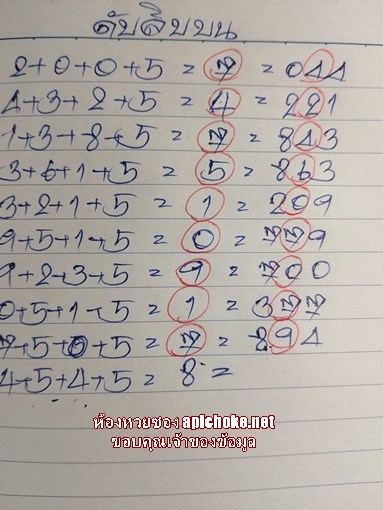 ดับสิบบน
2+0+0+5 = 7 = 044
4+3+2+5 = 4 = 221
1+3+8+5 = 7 = 843
3+6+1+5 = 5 = 863
3+2+1+5 = 1 = 209
9+5+1+5 = 0 = 779
9+2+3+5 = 9 = 700
0+5+1+5 = 1 = 377
7+5+0+5 = 7 = 894
4+5+4+5 = 8 =
ห้องหวยซอง apichoke.net
ขอบคุณเจ้าของข้อมูล